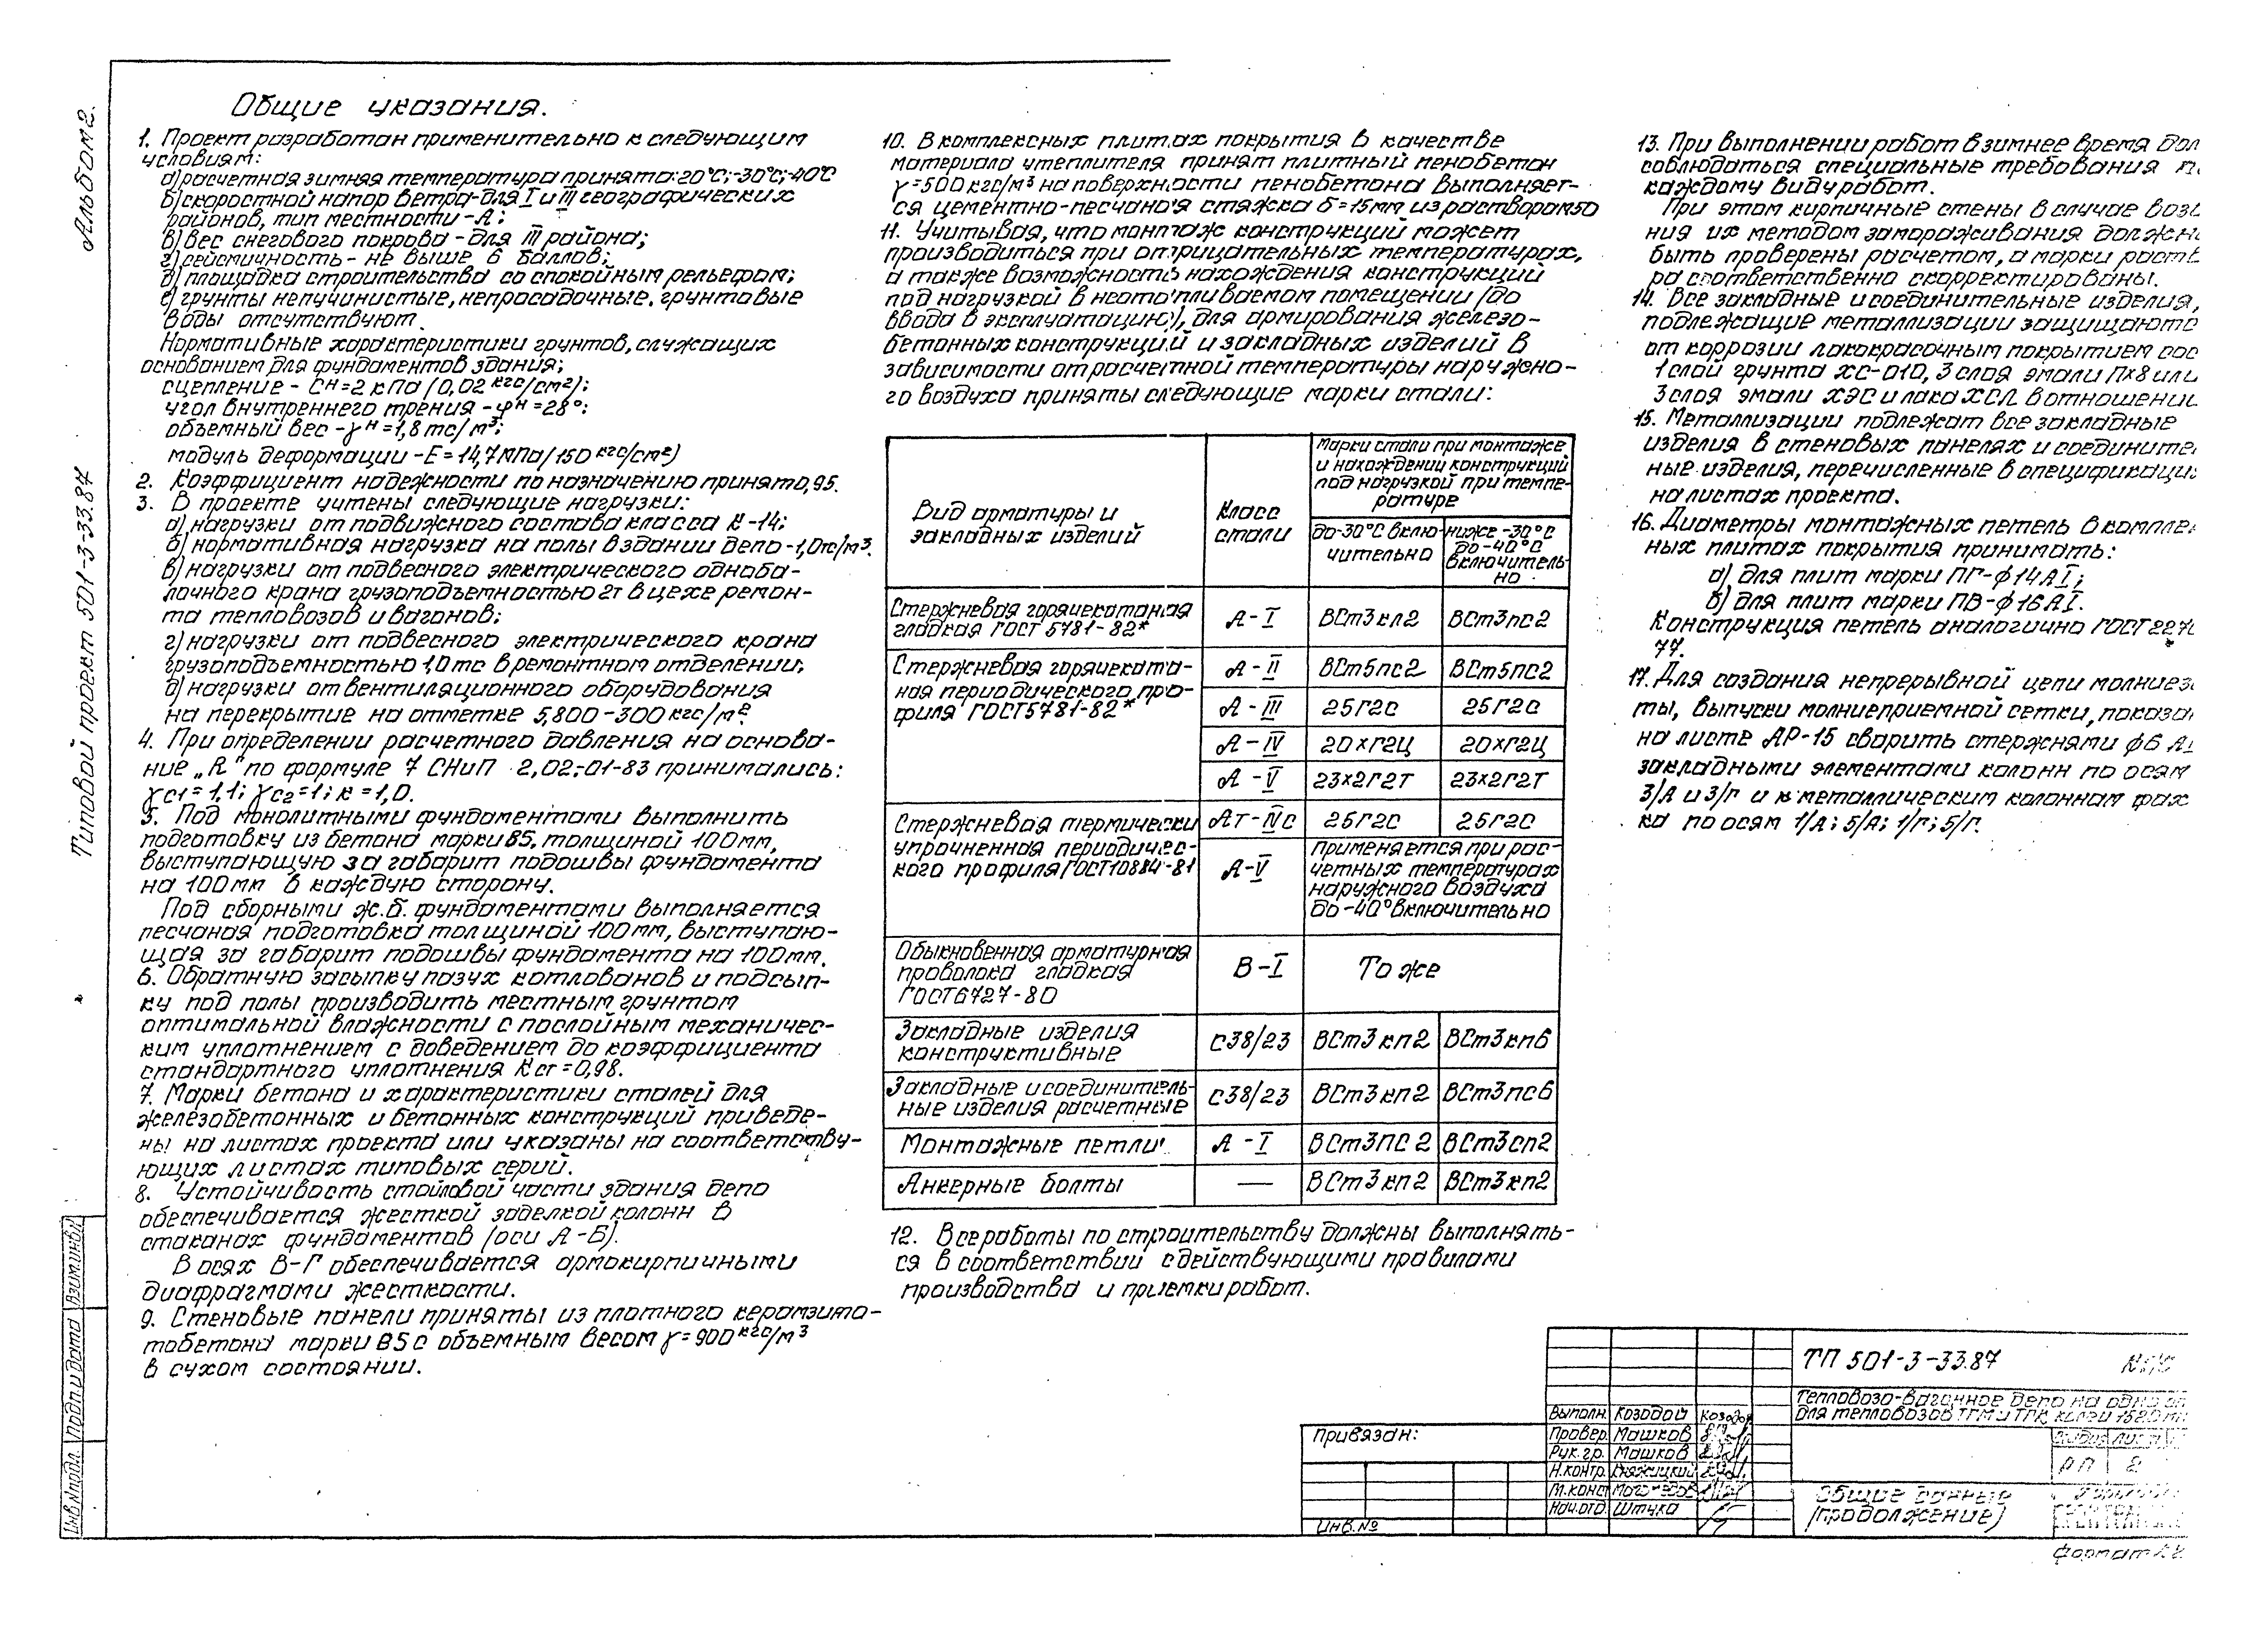 Альбом 2.
Типовой проект 501-3-33.87
Общие указания.
1. Проект разработан применительно к следующим
условиям:
а) расчетная зимняя температура принята-20°С;-30°С;-40°С
б) скоростной напор ветра-для I и III географических
районов, тип местности-А;
в) вес снегового покрова-для III района;
г) сейсмичность-не выше 6 баллов;
д) площадка строительства со спокойным рельефом;
е) грунты непучинистые, непросадочные, грунтовые
воды отсутствуют.
Нормативные характеристики грунтов, служащих
основанием для фундаментов здания;
сцепление - Сн=2 кПа (0,02 кгс/см2);
угол внутреннего трения - φн=28°;
объемный вес - γн=1,8 тс/м3;
модуль деформации - Е=14,7МПа/150 кгс/см2)
2. Коэффициент надежности по назначению принят 0,95.
3. В проекте учтены следующие нагрузки:
а) нагрузки от подвижного состава класса К-14;
б) нормативная нагрузка на полы в здании депо-1,0тс/м3.
в) нагрузки от подвесного электрического одноба-
лочного крана грузоподъемностью 2т в цехе ремон-
та тепловозов и вагонов;
г) нагрузки от подвесного электрического крана
грузоподъемностью 1,0тс в ремонтном отделении;
д) нагрузки от вентиляционного оборудования
на перекрытие на отметке 5,800-300 кгс/м2.
4. При определении расчетного давления на основа-
ние „R" по формуле 7 СНиП 2,02,-01-83 принимались:
γс1=1,1; γс2=1; к=1,0.
5. Под монолитными фундаментами выполнить
подготовку из бетона марки В5, толщиной 100мм,
выступающую за габарит подошвы фундамента
на 100мм в каждую сторону.
Под сборными ж.б. фундаментами выполняется
песчаная подготовка толщиной 100мм, выступаю-
щая за габарит подошвы фундамента на 100мм.
6. Обратную засыпку пазух котлованов и подсып-
ку под полы производить местным грунтом
оптимальной влажности с послойным механичес-
ким уплотнением с доведением до коэффициента
стандартного уплотнения Kст=0,98.
7. Марки бетона и характеристики сталей для
железобетонных и бетонных конструкций приведе-
ны на листах проекта или указаны на соответству-
ющих листах типовых серий.
8. Устойчивость стойловой части здания депо
обеспечивается жесткой заделкой колонн в
стаканах фундаментов (оси А-Б).
В осях В-Г обеспечивается армокирпичными
диафрагмами жесткости.
9. Стеновые панели приняты из плотного керамзито-
тобетона марки В5 с объемным весом γ=900 кгс/м3
в сухом состоянии.
10. В комплексных плитах покрытия в качестве
материала утеплителя принят плитный пенобетон
γ=500 кгс/м3 на поверхности пенобетона выполняет-
ся цементно-песчаная стяжка δ=15мм из раствора м50
11. Учитывая, что монтаж конструкций может
производиться при отрицательных температурах,
а также возможность нахождения конструкций
под нагрузкой в неотапливаемом помещении (до
ввода в эксплуатацию), для армирования железо-
бетонных конструкций и закладных изделий в
зависимости от расчетной температуры наружно-
го воздуха приняты следующие марки стали:
Вид арматуры и
закладных изделий
Класс
стали
Марки стали при монтаже
и нахождении конструкций
под нагрузкой при темпе-
ратуре
до-30°С вклю-
чительно
ниже-30°С
до-40°С
включитель-
но
Стержневая горячекатаная
гладкая ГОСТ 5781-82*
А-I ВСт3кп2 ВСт3пс2
Стержневая горячеката-
ная периодического про-
филя ГОСТ5781-82*
А-II ВСт5пс2 ВСт5пс2
А-III 25Г2С 25Г2С
А-IV 20хГ2Ц 20хГ2Ц
А-V 23х2Г2Т 23х2Г2Т
Стержневая термически
упрочненная периодичес-
кого профиля ГОСТ10884-81
Ат-IVс 25Г2С 25Г2С
А-V
применяется при рас-
четных температурах
наружного воздуха
до-40° включительно
Обыкновенная арматурная
проволока гладкая
ГОСТ6727-80
В-I То же
Закладные изделия
конструктивные
С38/23 ВСт3кп2 ВСт3кп6
Закладные и соединитель-
ные изделия расчетные
С38/23 ВСт3кп2 ВСт3пс6
Монтажные петли А-I ВСт3пс2 ВСт3сп2
Анкерные болты — ВСт3кп2 ВСт3кп2
12. Все работы по строительству должны выполнять-
ся в соответствии с действующими правилами
производства и приемки работ.
13. При выполнении работ в зимнее время дол
соблюдаться специальные требования п
каждому виду работ.
При этом кирпичные стены в случае возв
ния их методом замораживания должн
быть проверены расчетом, а марки раств
ра соответственно скорректированы.
14. Все закладные и соединительные изделия,
подлежащие металлизации защищаютс
от коррозии лакокрасочным покрытием сос
1 слой грунта ХС-010, 3 слоя эмали ПХВ или
3 слоя эмали ХЭС и лака ХСЛ в отношении
15. Металлизации подлежат все закладные
изделия в стеновых панелях и соедините
ные изделия, перечисленные в спецификаци
на листах проекта.
16. Диаметры монтажных петель в комплек
ных плитах покрытия принимать:
а) для плит марки ПГ-ф14АI;
б) для плит марки ПВ-ф16АI.
Конструкция петель аналогично ГОСТ 227
77.
17. Для создания непрерывной цепи молниез
ты, выпуски молниеприемной сетки, показа
на листе АР-15 сварить стержнями ф6 АI
закладными элементами колонн по осям
3/А и 3/Г и к металлическим колоннам фах
ка по осям 1/А; 5/А; 1/Г; 5/Г.
Инв.№подл. Подп и дата Взам.инв.№
Привязан:
Инв.№
Выполн. Козодой
Провер. Машков
Рук.гр. Машков
Н.контр.
Нач.отд. Штука
ТП 501-3-33.87
Тепловозо-вагонное депо на одно
для тепловозов ТГМ и ТГК колеи 1520
лист
РП 2
Общие данные
(продолжение)
Формат